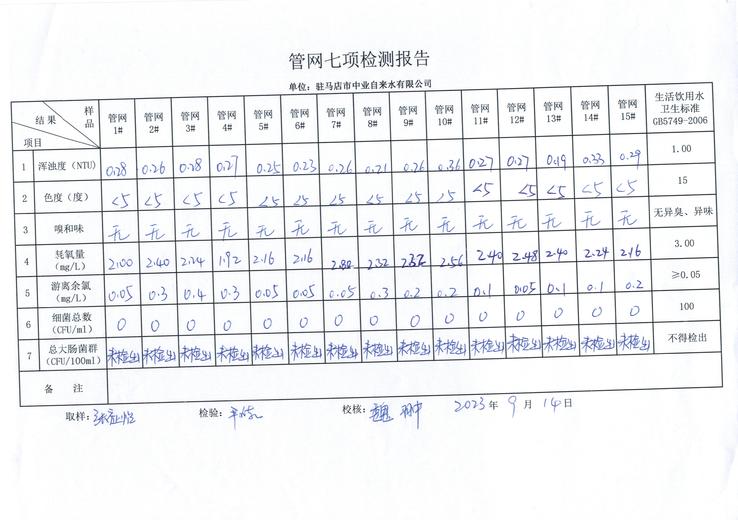 管网七项检测报告
单位：驻马店市中业自来水有限公司
结果 样品 项目 管网1# 管网2# 管网3# 管网4# 管网5# 管网6# 管网7# 管网8# 管网9# 管网10# 管网11# 管网12# 管网13# 管网14# 管网15# 生活饮用水卫生标准GB5749-2006
1 浑浊度（NTU） 0.28 0.26 0.28 0.27 0.25 0.23 0.26 0.21 0.26 0.36 0.27 0.27 0.19 0.33 0.29 1.00
2 色度（度） <5 <5 <5 <5 <5 <5 <5 <5 <5 <5 <5 <5 <5 <5 <5 15
3 嗅和味 无 无 无 无 无 无 无 无 无 无 无 无 无 无 无 无异臭、异味
4 耗氧量（mg/L） 2.00 2.40 2.24 1.92 2.16 2.16 2.32 2.56 2.40 2.48 2.40 2.24 2.16 3.00
5 游离余氯（mg/L） 0.05 0.3 0.4 0.3 0.05 0.05 0.05 0.3 0.2 0.2 0.1 0.05 0.1 0.1 0.2 ≥0.05
6 细菌总数（CFU/ml） 0 0 0 0 0 0 0 0 0 0 0 0 0 0 0 100
7 总大肠菌群（CFU/100ml） 未检出 未检出 未检出 未检出 未检出 未检出 未检出 未检出 未检出 未检出 未检出 未检出 未检出 未检出 未检出 不得检出
备 注
取样： 检验： 校核：魏 2023年9月14日